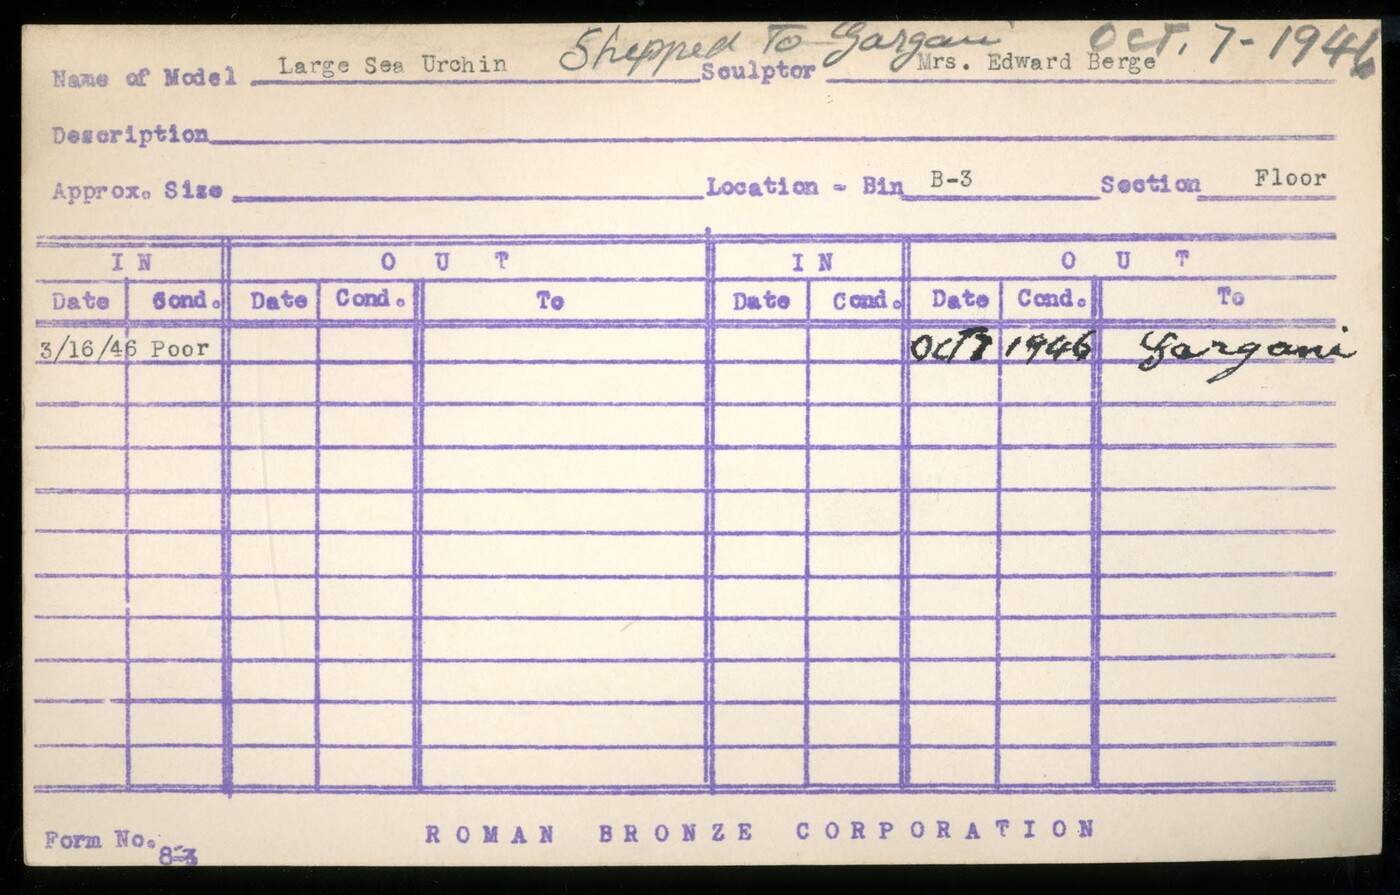 Shipped To Gargani Oct. 7-1946
Name of Model Large Sea Urchin Sculptor Mrs. Edward Berge
Description
Approx. Size Location - Bin B-3 Section Floor
IN OUT IN OUT
Date Cond. Date Cond. To Date Cond. Date Cond. To
3/16/46 Poor Oct 7 1946 Gargani
Form No. ROMAN BRONZE CORPORATION